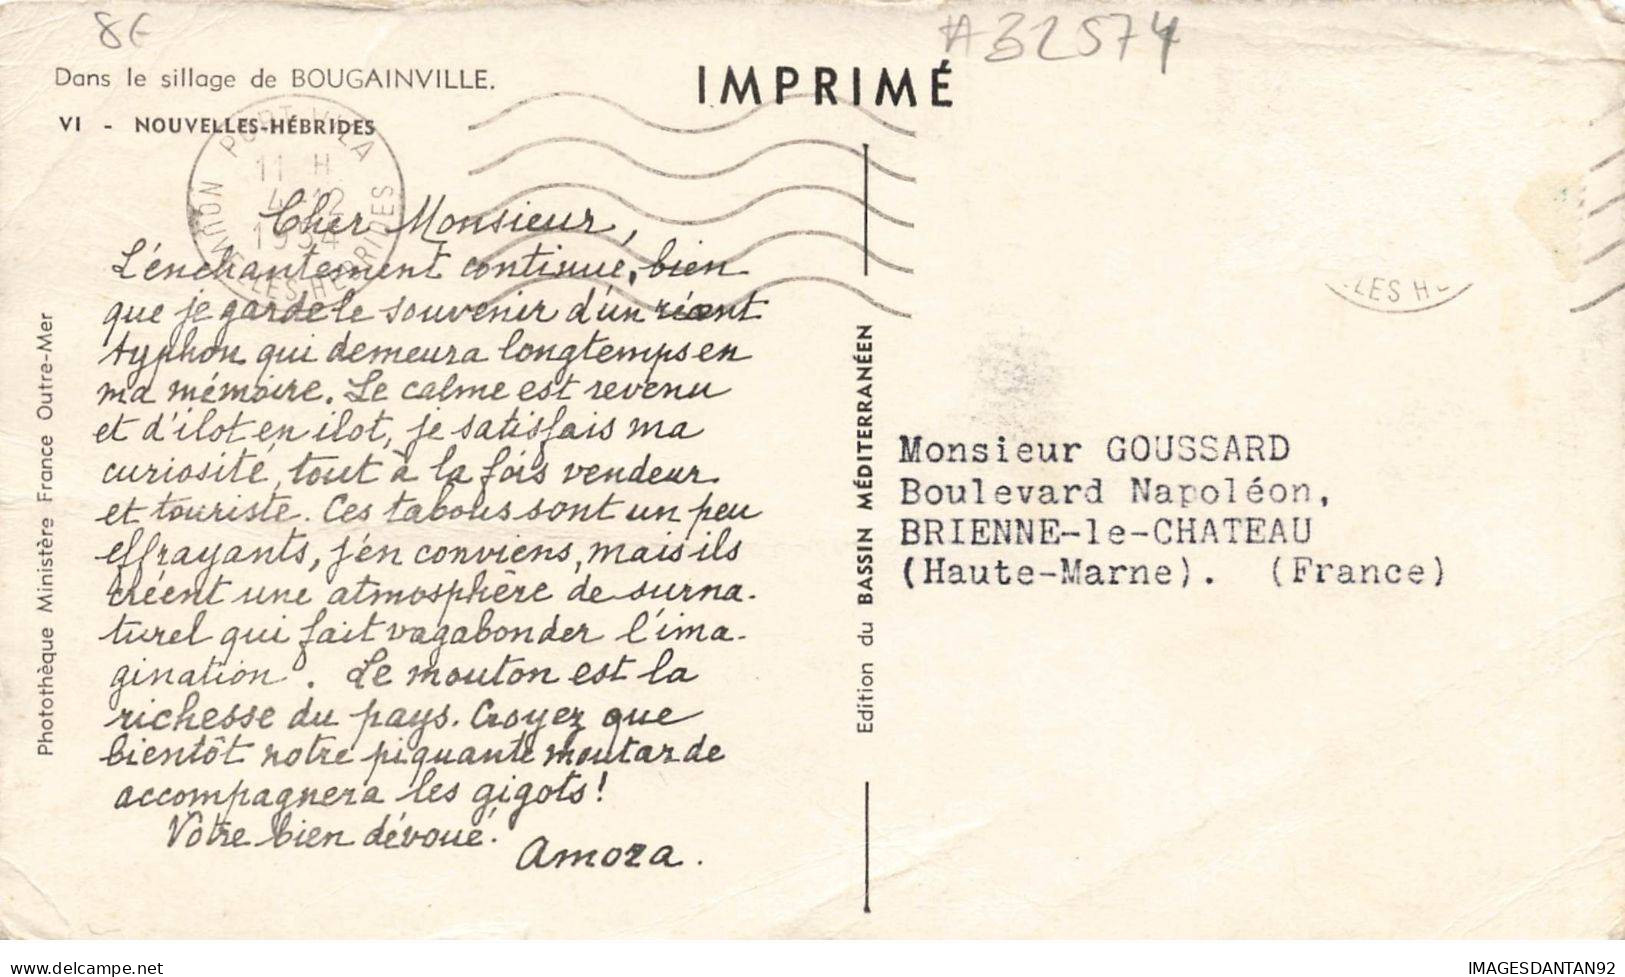 8€
#32574
Dans le sillage de BOUGAINVILLE.
VI - NOUVELLES-HÉBRIDES
IMPRIMÉ
PORT-VILA
11 H
4-12
1954
NOUVELLES HEBRIDES
LES H
Cher Monsieur,
L'énchantement continue, bien
que je garde le souvenir d'un riant
typhon qui demeura longtemps en
ma mémoire. Le calme est revenu
et d'ilot en ilot, je satisfais ma
curiosité, tout à la fois vendeur
et touriste. Ces tabous sont un peu
effrayants, j'en conviens, mais ils
créent une atmosphère de surna-
turel qui fait vagabonder l'ima-
gination. Le mouton est la
richesse du pays. Croyez que
bientôt notre piquante moutarde
accompagnera les gigots!
Votre bien dévoué.
Amora.
Photothèque Ministère France Outre-Mer
Edition du BASSIN MÉDITERRANÉEN
Monsieur GOUSSARD
Boulevard Napoléon,
BRIENNE-le-CHATEAU
(Haute-Marne). (France)
IMAGESDANTAN92
delcampe.net